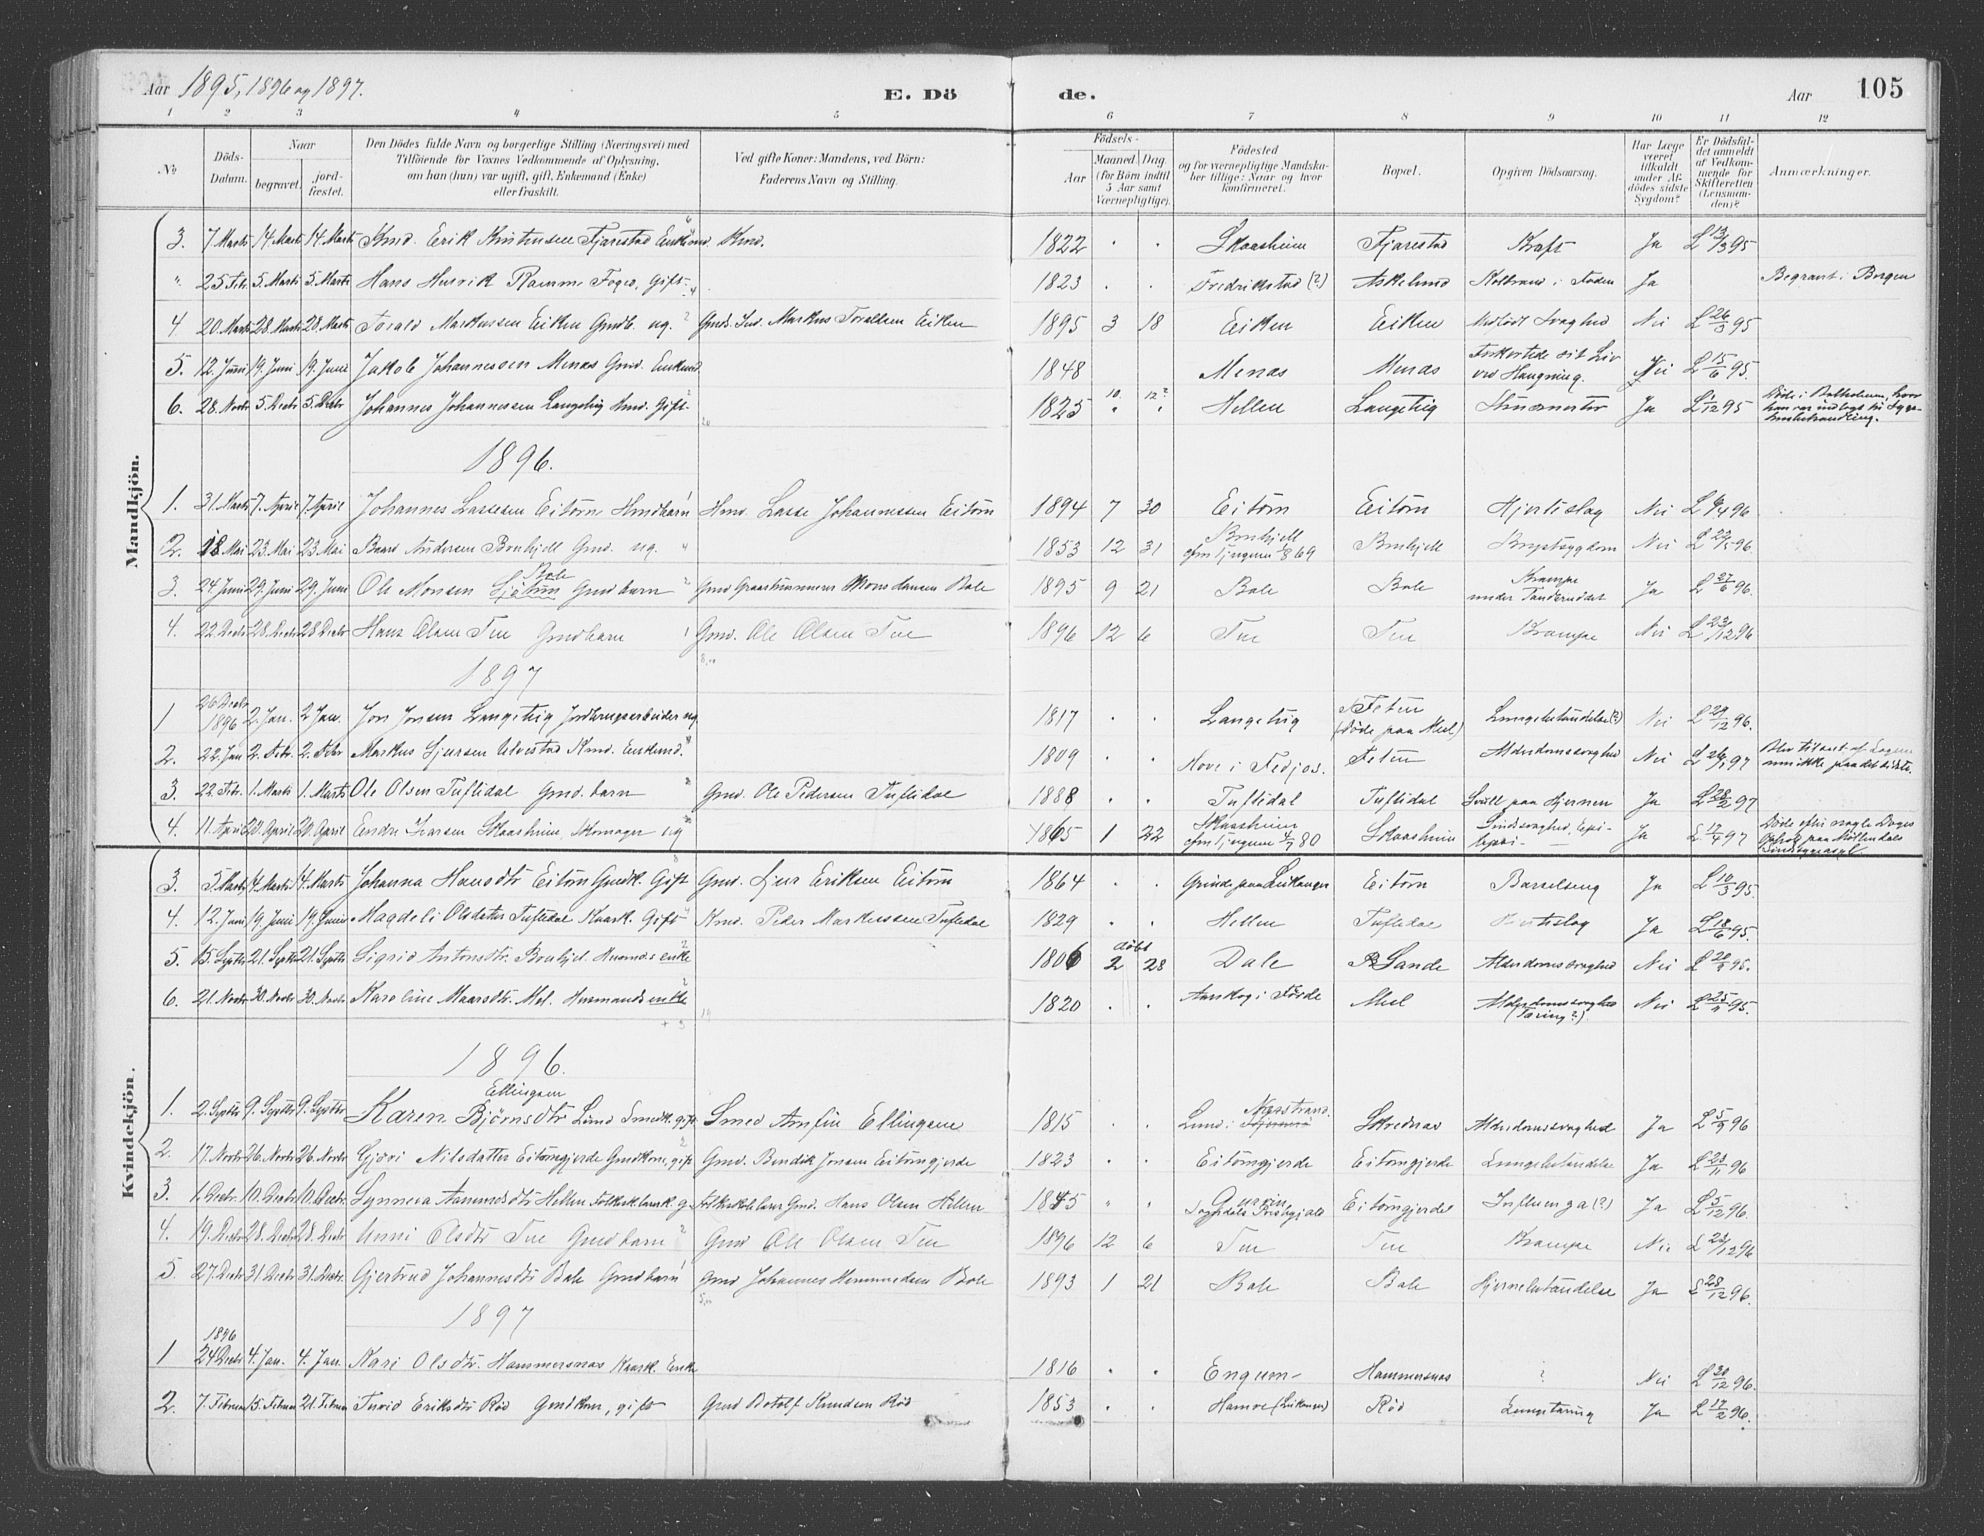 Aar 1895, 1896 og 1897.
E. Dö de.
Aar 105
1 2 3 4 5 6 7 8 9 10 11 12
No
Döds-Datum.
Naar
begravet.
jord-fæstet.
Den Dödes fulde Navn og borgerlige Stilling (Næringsvei) med
Tilföiende for Voxnes Vedkommende af Oplysning,
om han (hun) var ugift, gift, Enkemand (Enke)
eller fraskilt.
Ved gifte Koner: Mandens, ved Börn:
Faderens Navn og Stilling.
Födsels-
Aar
Maaned. Dag.
(for Börn indtil
5 Aar samt
Værnepligtige).
Födested
og for værnepligtige Mandska-
ber tillige: Naar og hvor
konfirmeret.
Bopæl.
Opgiven Dödsaarsag.
Har Læge
været
tilkaldt
under Af-
dödes sidste
Sygdom?
Er Dödsfal-
det anmeldt
af Vedkom-
mende for
Skifteretten
(Lensman-
den)?
Anmærkninger.
Mandkjön.
3. 7 Marts 14. Marts 14. Marts Kmd. Erik Fjærestad Enkmd. Kmd. 1822 " " Skaasheim Fjærestad Kræft Ja L 13/3 95
" 25 Febr. 5. Marts 5. Marts Hans Henrik Ramm Foged, Gift 1823 . . Fredrikstad (?) Askelund Kolbrand i Foden Ja Begravet i Bergen
4 20. Marts 28. Marts 28. Marts Torald Markussen Eiken Gmdb. ug. Gmds. Markus Toraldsen Eiken 1895 3 18 Eiken Eiken Medfödt Svaghed Nei L 26/3 95
5. 12. Juni 19. Juni 19. Juni Jakob Johannessen Menæs Gmd. Enkmd. 1848 Menæs Menæs Forkortede sit Liv ved Hængning. Nei L 15/6 95.
6. 28. Novbr 5. Decbr 5. Decbr Johannes Johannessen Langeteig Kmd. Gift 1825 10. 12? Hellen Langeteig Ja L /12 95 Döde i Balholmen, hvor han var indlagt til Syge-
husbehandling.
1896.
1. 31. Marts 7. April 7. April Johannes Lassesen Eitörn Hmdbarn Hmd. Lasse Johannessen Eitörn 1894 7 30 Eitörn Eitörn Hjerteslag Nei L /4 96
2. 18 Mai 23. Mai 23. Mai Baard Andersen Bruhjell Gmd. ug. 1853 12 31 Bruhjell cfm Tjugum 1869 Bruhjell Brystsygdom Nei L 22/5 96.
3. 24. Juni 29. Juni 29. Juni Ole Monsen Bale Gmdbarn Gmd Mons Hansen Bale 1895 9 21 Bale Bale Krampe under Tandbruddet Ja L 27/6 96.
4. 22. Decbr 28. Decbr 28 Decbr Hans Olsen Tue Gmdbarn Gmd. Ole Olsen Tue 1896 12 6 Tue Tue Krampe Nei L 23/12 96
1897
1 26. Decbr 1896 2. Jan. 2 Jan. Jon Jonsen Langeteig Jordbrugsarbeider ug. 1817 . . Langeteig Feten (Döde paa Mel) Lungebetændelse (?) Nei L 29/12 96.
2. 22. Jan 2. Febr 2. Febr Markus Sjursen Ulvestad Kmd. Enkmd. 1809 . . Hove i Feten Alderdomssvaghed Nei L 26/1 97
3. 22. Febr. 1. Marts 1. Marts Ole Olsen Tuftedal Gmd. barn Gmd. Ole Pedersen Tuftedal 1888 . . Tuftedal Tuftedal Svulst paa Hjernen Ja L 28/2 97
4. 11. April 20. April 20. April Endre Ivarsen Skaasheim, Skomager ug 1865 1 22 Skaasheim cfm Tjugum 80 Skaasheim Sindssvaghed, Epilepsi Ja L 12/4 97 Döde efter nogle Dages Ophold paa Möllendals Sindssygeasyl
Kvindekjön.
3. 5 Marts 14. Marts 14. Marts Johanna Hansdtr Eitörn Gmdk. Gift Gmd. Sjur Eriksen Eitörn 1864 . . Grinde paa Leikanger Eitörn Barselseng Ja L 10/3 95.
4. 12. Juni 19. Juni 19. Juni Magdeli Olsdatter Tuftedal Kaark. Gift Kmd. Peder Markussen Tuftedal 1829 . . Hellen Tuftedal Ja L 18/6 95.
5. 15. Septbr 21. Septbr 21. Septbr Sigrid Antonsdtr. Bruhjel Husmds enke 1806 döbt 2 28 Dale Sande Alderdomssvaghed Nei L 20/9 95.
6. 21. Novbr 30. Novbr 30. Novbr Karoline Maarsdtr. Mel. Husmandsenke 1820 . . Aaskog i Förde Mel Alderdomssvaghed (Tæring?) Nei L 25/11 95.
1896.
1. 2. Septbr 9. Septbr 9. Septbr Karen Björnsdtr Ellingsen Lund Smedk. gift Smed Arnfin Ellingsen 1815 . . Lund i Skrednæs Alderdomssvaghed Ja L 5/9 96
2. 17. Novbr 26. Novbr 26. Novbr Gjöri Nilsdatter Eitörngjerde Gmdkone, gift Gmd. Bendik Jonsen Eitörngjerde 1823 . . Eitörngjerde Eitörngjerde Lungebetændelse Ja L 23/11 96
3. 1. Decbr. 10. Decbr 10. Decbr. Synneva Hellen Folkesklærerk. g. Folkeskolelærer Gmd. Hans Olsen Hellen 1845 " . Sogndals Prestegjæld Eitörngjerde Influenza (?) Ja L 5/12 96.
4. 19. Decbr 28. Decbr 28. Decbr Unni Olsdtr Tue Gmdbarn Gmd Ole Olsen Tue 1896 12 6 Tue Tue Krampe Nei L 23/12 96
5 27. Decbr 31. Decbr 31. Decbr. Gjertrud Johannesdtr Bale Gmdbarn Gmd Johannes Hermundsen Bale 1893 1 21 Bale Bale Hjernebetændelse Ja L 28/12 96.
1897
1 1896 24 Decbr 4. Jan. 4. Jan. Kari Olsdtr. Hammersnæs Kaark. Enke 1816 . . Engum Hammersnæs ? Nei L 30/12 96.
2. 7. Februar 15. Februar 21. Februar Turid Eriksdtr Röd Gmdkone, gift Gmd Botolf Knudsen Röd 1853 . . Hamre (Leikanger) Röd Lungetæring Ja L 17/2 96.